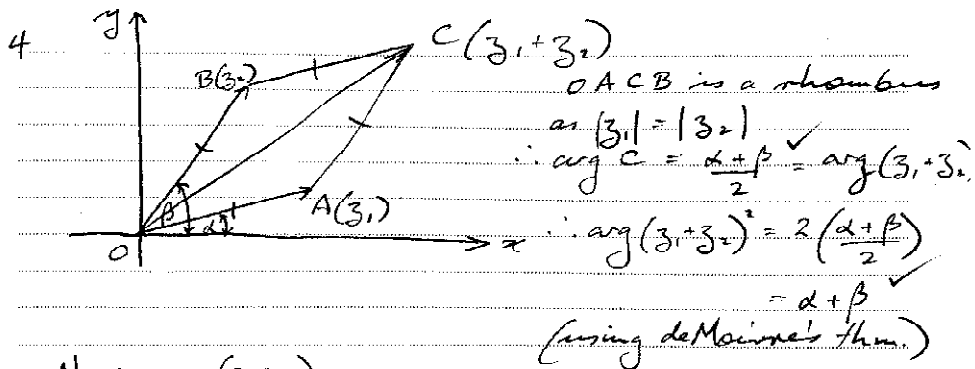 4
y
C(z₁+z₂)
B(z₂)
OACB is a rhombus
as |z₁| = |z₂|
∴ arg C = (α+β)/2 ✓ = arg(z₁+z₂)
A(z₁)
β
α
O
x
∴ arg(z₁+z₂)² = 2((α+β)/2)
= α+β ✓
(using deMoivre's thm.)